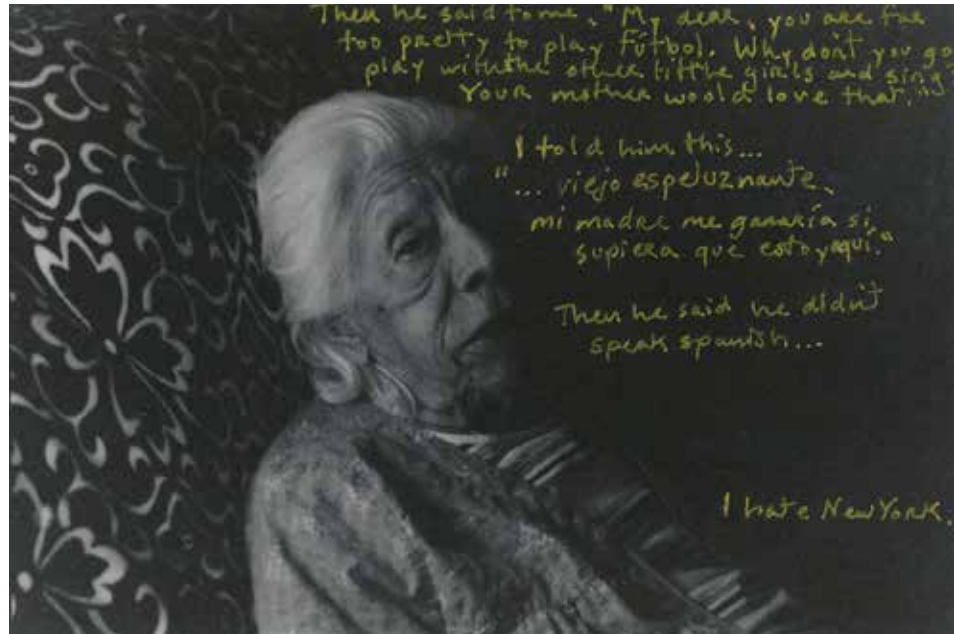 Then he said to me, "My dear, you are far
too pretty to play fútbol. Why don't you go
play with the other little girls and sing?
Your mother would love that."
I told him this...
"... viejo espeluznante,
mi madre me ganaría si
supiera que estoy aquí."
Then he said he didn't
speak spanish...
I hate New York.